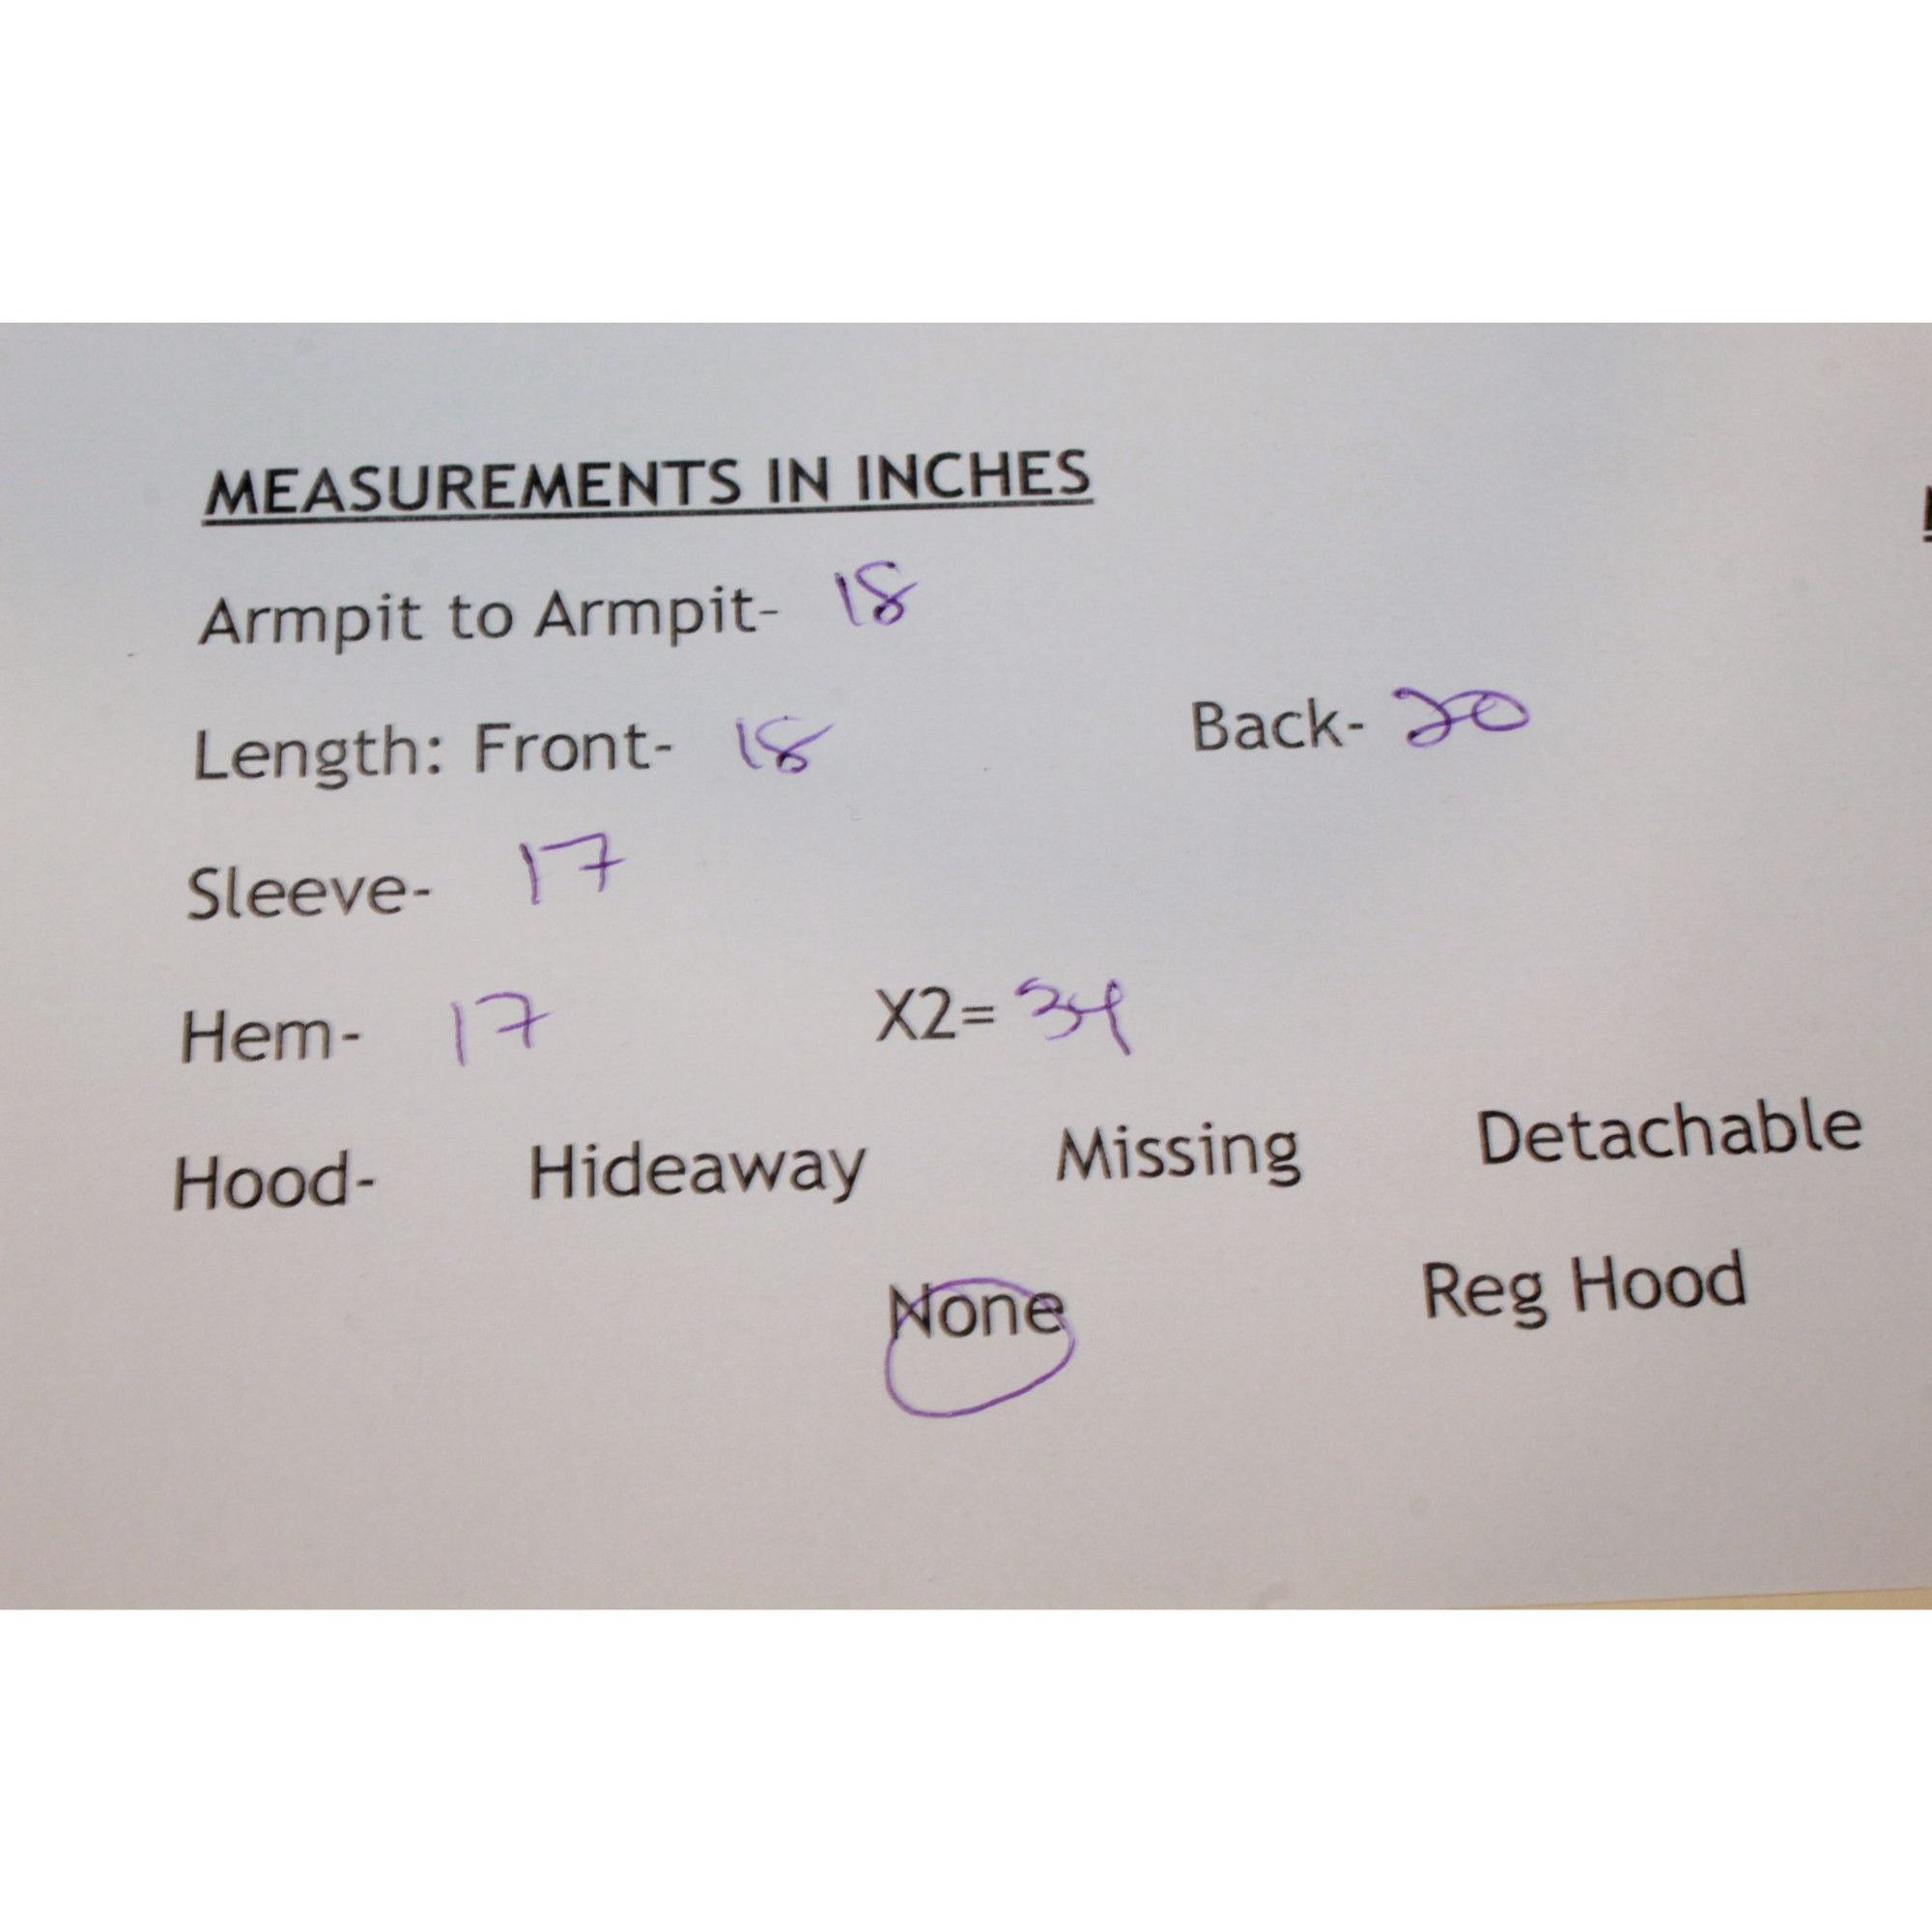 MEASUREMENTS IN INCHES
Armpit to Armpit- 18
Length: Front- 18 Back- 20
Sleeve- 17
Hem- 17 X2= 34
Hood- Hideaway Missing Detachable
None Reg Hood